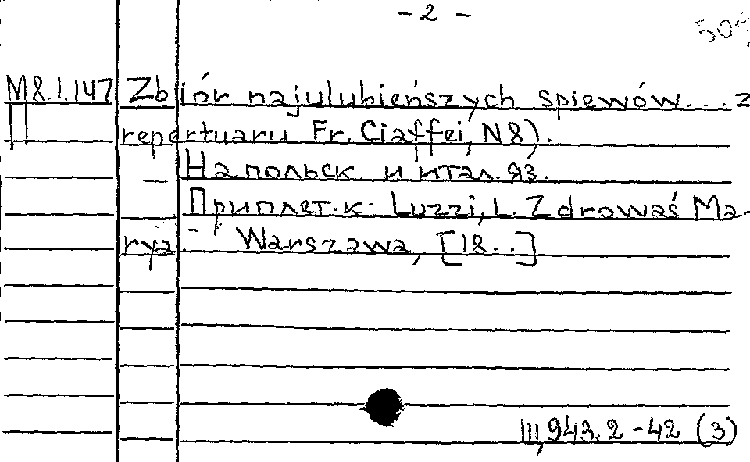 - 2 -
M8.1.147 Zbiór najulubieńszych spiewów... z
П repertuaru Fr. Ciaffei, N8).
– На польск и итал. яз.
Приплет. к: Luzzi, L. Zdrowaś Ma-
rya. - Warszawa, [18..]
III, 943.2-42 (3)